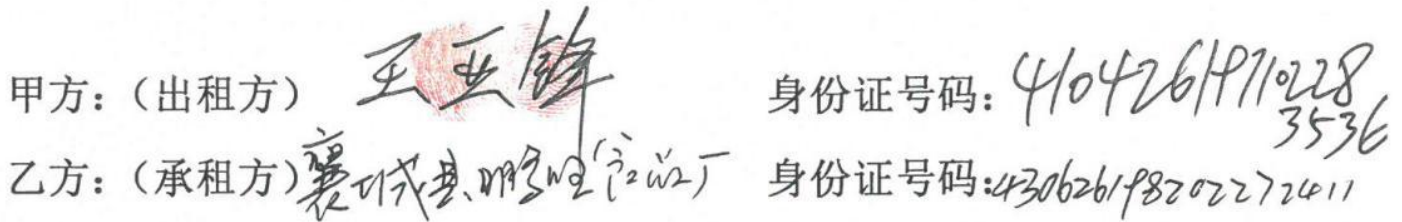 甲方：（出租方） 王亚锋 身份证号码：410426197102283536
乙方：（承租方）襄城县鹏旺厂 身份证号码：430626198202272411